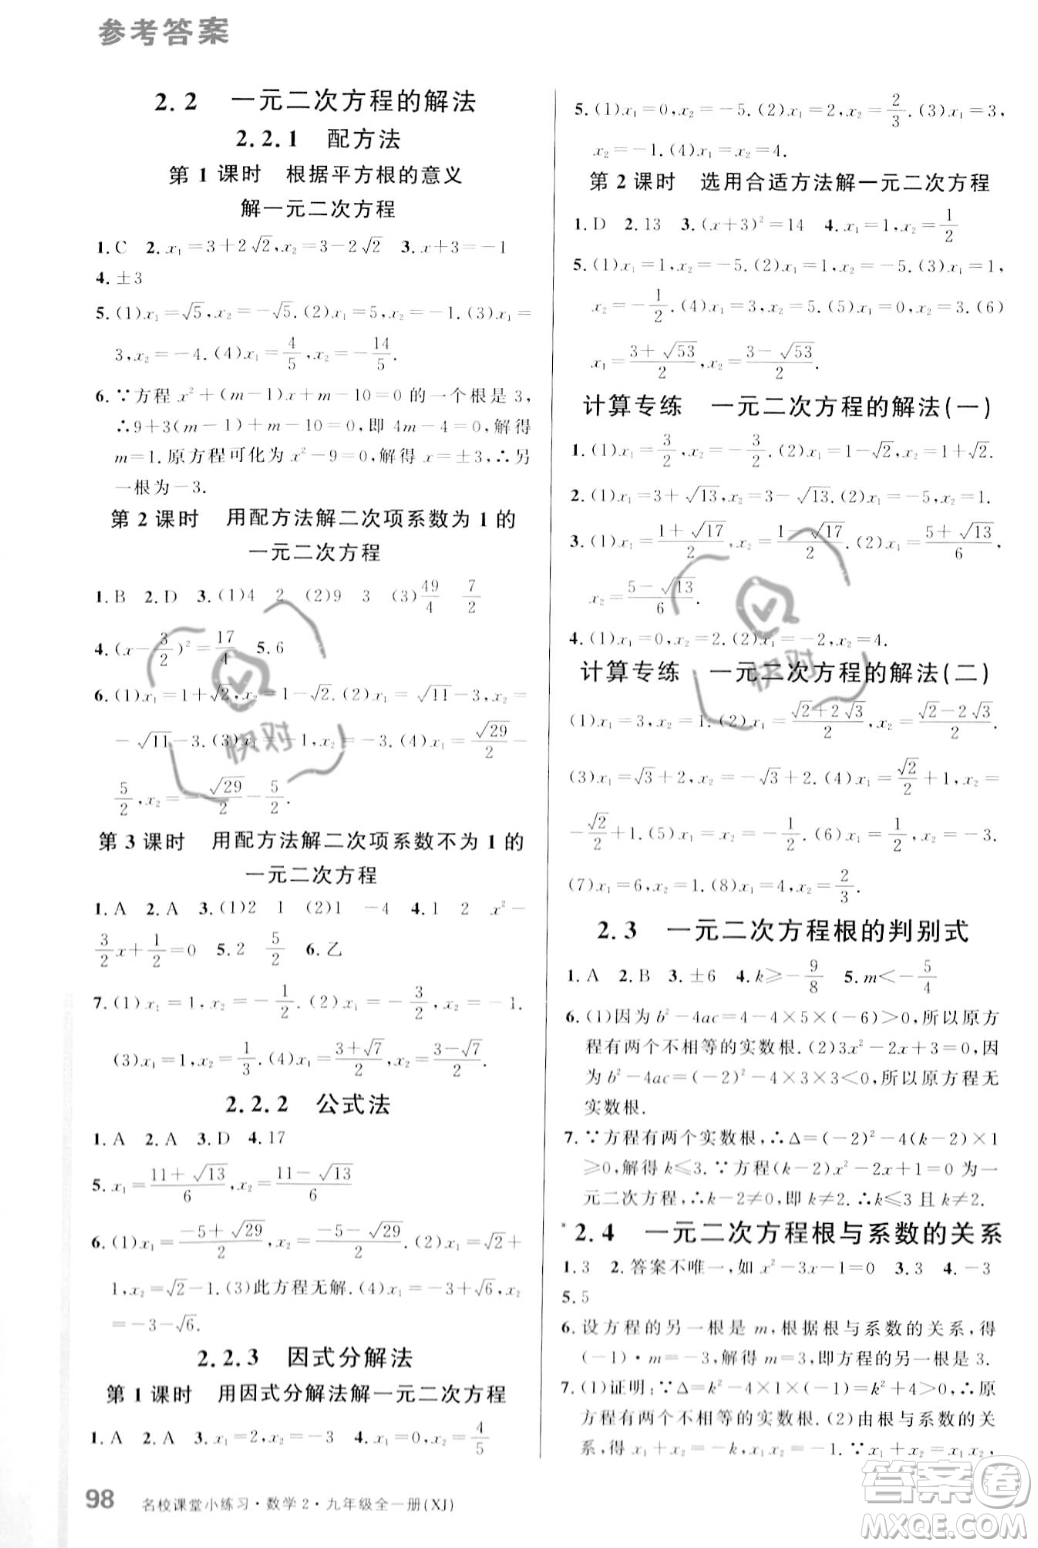 参考答案
2.2 一元二次方程的解法
2.2.1 配方法
第1课时 根据平方根的意义
解一元二次方程
1.C 2.x₁=3+2√2,x₂=3-2√2 3.x+3=-1
4.±3
5.(1)x₁=√5,x₂=-√5.(2)x₁=1,x₂=0.(3)x₁=
3,x₂=-4.(4)x₁=4/5,x₂=-14/5.
6.∵方程 x²+(m-1)x+m-10=0 的一个根是 3,
∴9+3(m-1)+m-10=0,即 4m-4=0,解得
m=1.原方程可化为 x²-9=0,解得 x=±3,∴另
一根为-3.
第2课时 用配方法解二次项系数为1的
一元二次方程
1.B 2.D 3.(1)4 2 (2)9 3 (3)49/4 7/2
4.(x-3/2)²=17/4 5.6
6.(1)x₁=1+√2,x₂=1-√2.(2)x₁=√11-3,x₂=
-√11-3.(3)x₁=-1,x₂=3.(4)x₁=√29/2-
5/2,x₂=-√29/2-5/2.
第3课时 用配方法解二次项系数不为1的
一元二次方程
1.A 2.A 3.(1)2 1 (2)1 -4 4.1 2 x²-
3/2x+1/2=0 5.2 6.乙
7.(1)x₁=1,x₂=-1/2.(2)x₁=-3/2,x₂=-1.
(3)x₁=1,x₂=1/3.(4)x₁=(3+√7)/2,x₂=(3-√7)/2.
2.2.2 公式法
1.A 2.A 3.D 4.17
5.x₁=(11+√13)/6,x₂=(11-√13)/6
6.(1)x₁=(-5+√29)/2,x₂=(-5-√29)/2.(2)x₁=√2+
1,x₂=√2-1.(3)此方程无解.(4)x₁=-3+√6,x₂=
-3-√6.
2.2.3 因式分解法
第1课时 用因式分解法解一元二次方程
1.A 2.A 3.x₁=2,x₂=3 4.x₁=0,x₂=4/5
5.(1)x₁=0,x₂=-5.(2)x₁=2,x₂=2/3.(3)x₁=3,
x₂=-1.(4)x₁=3,x₂=4.
第2课时 选用合适方法解一元二次方程
1.D 2.13 3.(x+3)²=14 4.x₁=1,x₂=1/2
5.(1)x₁=1,x₂=-5.(2)x₁=0,x₂=4.(3)x₁=1,
x₂=-1/2.(4)x₁=2,x₂=-5.(5)x₁=0,x₂=3.(6)
x₁=(3+√53)/2,x₂=(3-√53)/2.
计算专练 一元二次方程的解法(一)
1.(1)x₁=3/2,x₂=-3/2.(2)x₁=1+√2,x₂=1-√2.
2.(1)x₁=3+√13,x₂=3-√13.(2)x₁=2,x₂=1.
3.(1)x₁=(1+√17)/2,x₂=(1-√17)/2.(2)x₁=(5+√13)/6,
x₂=(5-√13)/6.
4.(1)x₁=0,x₂=4.(2)x₁=-2,x₂=4.
计算专练 一元二次方程的解法(二)
(1)x₁=3,x₂=1.(2)x₁=(√2+2√3)/2,x₂=(√2-2√3)/2.
(3)x₁=√3+2,x₂=-√3+2.(4)x₁=√2/2+1,x₂=
-√2/2+1.(5)x₁=2,x₂=-1/2.(6)x₁=-1,x₂=-3.
(7)x₁=6,x₂=1.(8)x₁=4,x₂=2/3.
2.3 一元二次方程根的判别式
1.A 2.B 3.±6 4.k≥-9/8 5.m<-5/4
6.(1)因为 b²-4ac=4-4×5×(-6)>0,所以原方
程有两个不相等的实数根.(2)3x²-2x+3=0,因
为 b²-4ac=4-4×3×3<0,所以原方程无
实数根.
7.∵方程有两个实数根,∴Δ=(-2)²-4(k-2)×1
≥0,解得 k≤3.∵方程(k-2)x²-2x+1=0 是一
元二次方程,∴k-2≠0,即 k≠2.∴k≤3 且 k≠2.
*2.4 一元二次方程根与系数的关系
1.3 2.答案不唯一,如 x²-3x-1=0 3.3 4.-3
5.5
6.设方程的另一根是 m,根据根与系数的关系,得
(-1)·m=-3,解得 m=3,即方程的另一根是 3.
7.(1)证明:∵Δ=k²-4×1×(-1)=k²+4>0,∴原
方程有两个不相等的实数根.(2)由根与系数的关
系,得 x₁+x₂=-k,x₁x₂=-1.∵x₁+x₂=x₁x₂,
98 名校课堂小练习·数学2·九年级全一册(XJ)
快对
快对